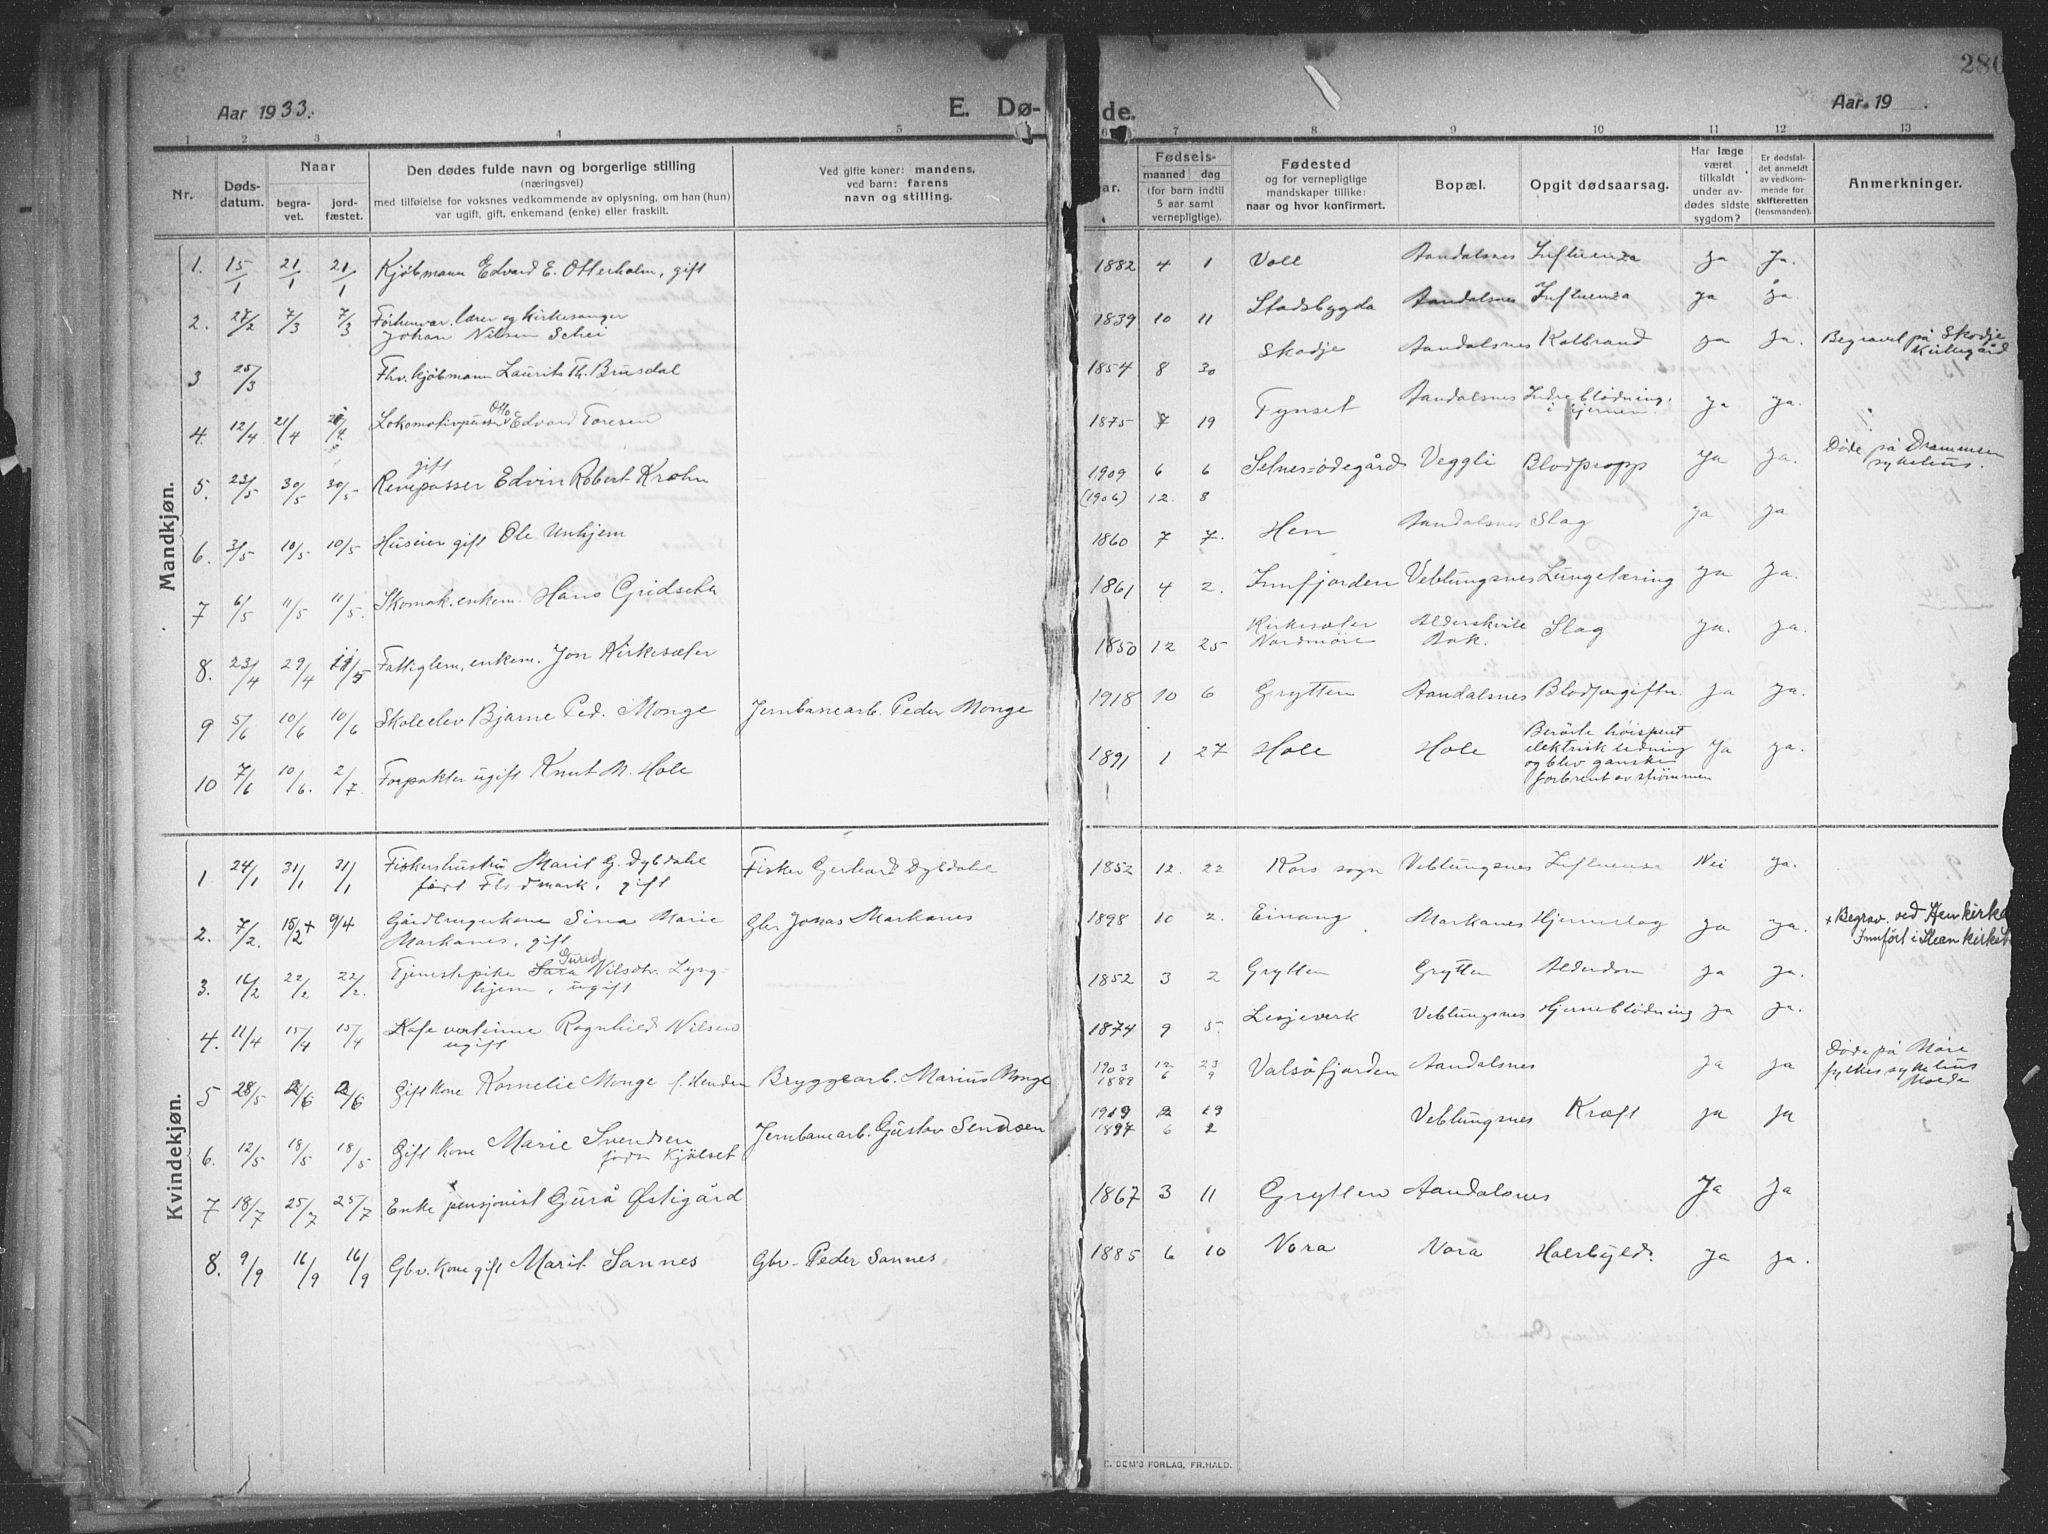 280
Aar 1933.
E. Dø-
de.
Aar 19 .
1 2 3 4 5 6 7 8 9 10 11 12 13
Nr.
Døds-
datum.
Naar
begra-
vet.
jord-
fæstet.
Den dødes fulde navn og borgerlige stilling
(næringsvei)
med tilføielse for voksnes vedkommende av oplysning, om han (hun)
var ugift, gift, enkemand (enke) eller fraskilt.
Ved gifte koner: mandens,
ved barn: farens
navn og stilling.
ar.
Fødsels-
maaned dag
(for barn indtil
5 aar samt
vernepligtige).
Fødested
og for vernepligtige
mandskaper tillike:
naar og hvor konfirmert.
Bopæl.
Opgit dødsaarsag.
Har læge
været
tilkaldt
under av-
dødes sidste
sygdom?
Er dødsfal-
det anmeldt
av vedkom-
mende for
skifteretten
(lensmanden).
Anmerkninger.
Mandkjøn.
1. 15/1 21/1 21/1 Kjøbmann Edvard E. Otterholm, gift 1882 4 1 Voll Aandalsnes Influenza ja ja.
2. 27/2 7/3 7/3 Førhenvær. lærer og kirkesanger
Johan Nilsen Schei 1839 10 11 Stadsbygda Aandalsnes Influensa ja ja.
3 25/3 Fhv. kjøbmann Laurits Th. Brusdal 1854 8 30 Skodje Aandalsnes Kolbrand ja ja. Begravet på Skodje
Kirkegård
4. 12/4 21/4 Lokomotivpusser Otto Edvard Toresen
gift 1875 7 19 Tynset Aandalsnes Indre blødning,
i hjernen. ja ja.
5. 23/5 30/5 30/5 Revepasser Edvin Robert Krohn 1909 6 6 Setnes-ødegård Veggli Blodpropp ja ja Døde på Drammen
sykehus.
(1906) 12. 8
6. 3/5 10/5 10/5 Huseier gift Ole Unhjem 1860 7 7. Hen Aandalsnes Slag ja ja
7 6/5 11/5 11/5. Skomak. enkem. Hans Gridsetn 1861 4 2. Innfjorden Veblungsnes Lungetæring ja ja.
8. 23/4 29/4 Fattiglem, enkem. Jon Kirkesæter 1850 12 25 Kirkesæter
Nordmøre Alderskvile
Bak. Slag ja. ja.
9 5/6 10/6 10/6 Skoleelev Bjarne Ped. Monge Jernbanearb. Peder Monge 1918 10 6 Grytten Aandalsnes Blodforgiftn. ja ja.
10 7/6 10/6. 2/7. Forpakter ugift Knut M. Hole 1891 1 27 Hole Hole Berørte høispent
elektrisk ledning
og blev ganske
forbrent av strømmen ja ja.
Kvindekjøn.
1. 24/1 31/1 31/1 Fiskershustru Marit G. Dybdahl
født Flodmark, gift Fisker Gerhard Dybdahl 1852 12. 22 Kors sogn Veblungsnes Influensa Nei ja.
2. 7/2. 15/2 + 9/4 Gårdbrugerkone Sina Marie
Markanes, gift Gbr Jonas Markanes 1898 10 2. Einang Markanes Hjerneslag ja ja. + Begrav. ved Hen kirke
Innført i Hen kirkeb
3. 16/2 22/2 22/2. Tjenestepike Sara Gurid Nilsdtr. Lyng-
hjem, ugift 1852 3 2 Grytten Grytten Alderdom ja ja.
4. 11/4 15/4 15/4 Kafe vertinne Ragnhild Nilsen
ugift 1874 9 5. Lesjeverk Veblungsnes Hjerneblødning ja ja.
5 28/5 2/6 2/6 Gift kone Kornelie Monge f. Henden Bryggearb. Marius Monge 1903 12 23
1889 6 9 Valsøfjorden Aandalsnes ja ja Døde på Møre
fylkes sykehus
Molde
6. 12/5 18/5 18/5 Gift kone Marie Svendsen
født Kjølset Jernbanearb. Gustav Sendsen 1919 2 19
1897 6 2 Veblungsnes Kræft ja ja
7 18/7 25/7 25/7 Enke pensjonist Gurå Østigård 1867 3 11 Grytten Aandalsnes Ja ja
8. 9/9 16/9 16/9 Gbr. kone gift Marit Sannes Gbr. Peder Sannes 1885 6 10 Nora Nora Halsbyld. ja ja.
DEM'S FORLAG, FR.HALD.